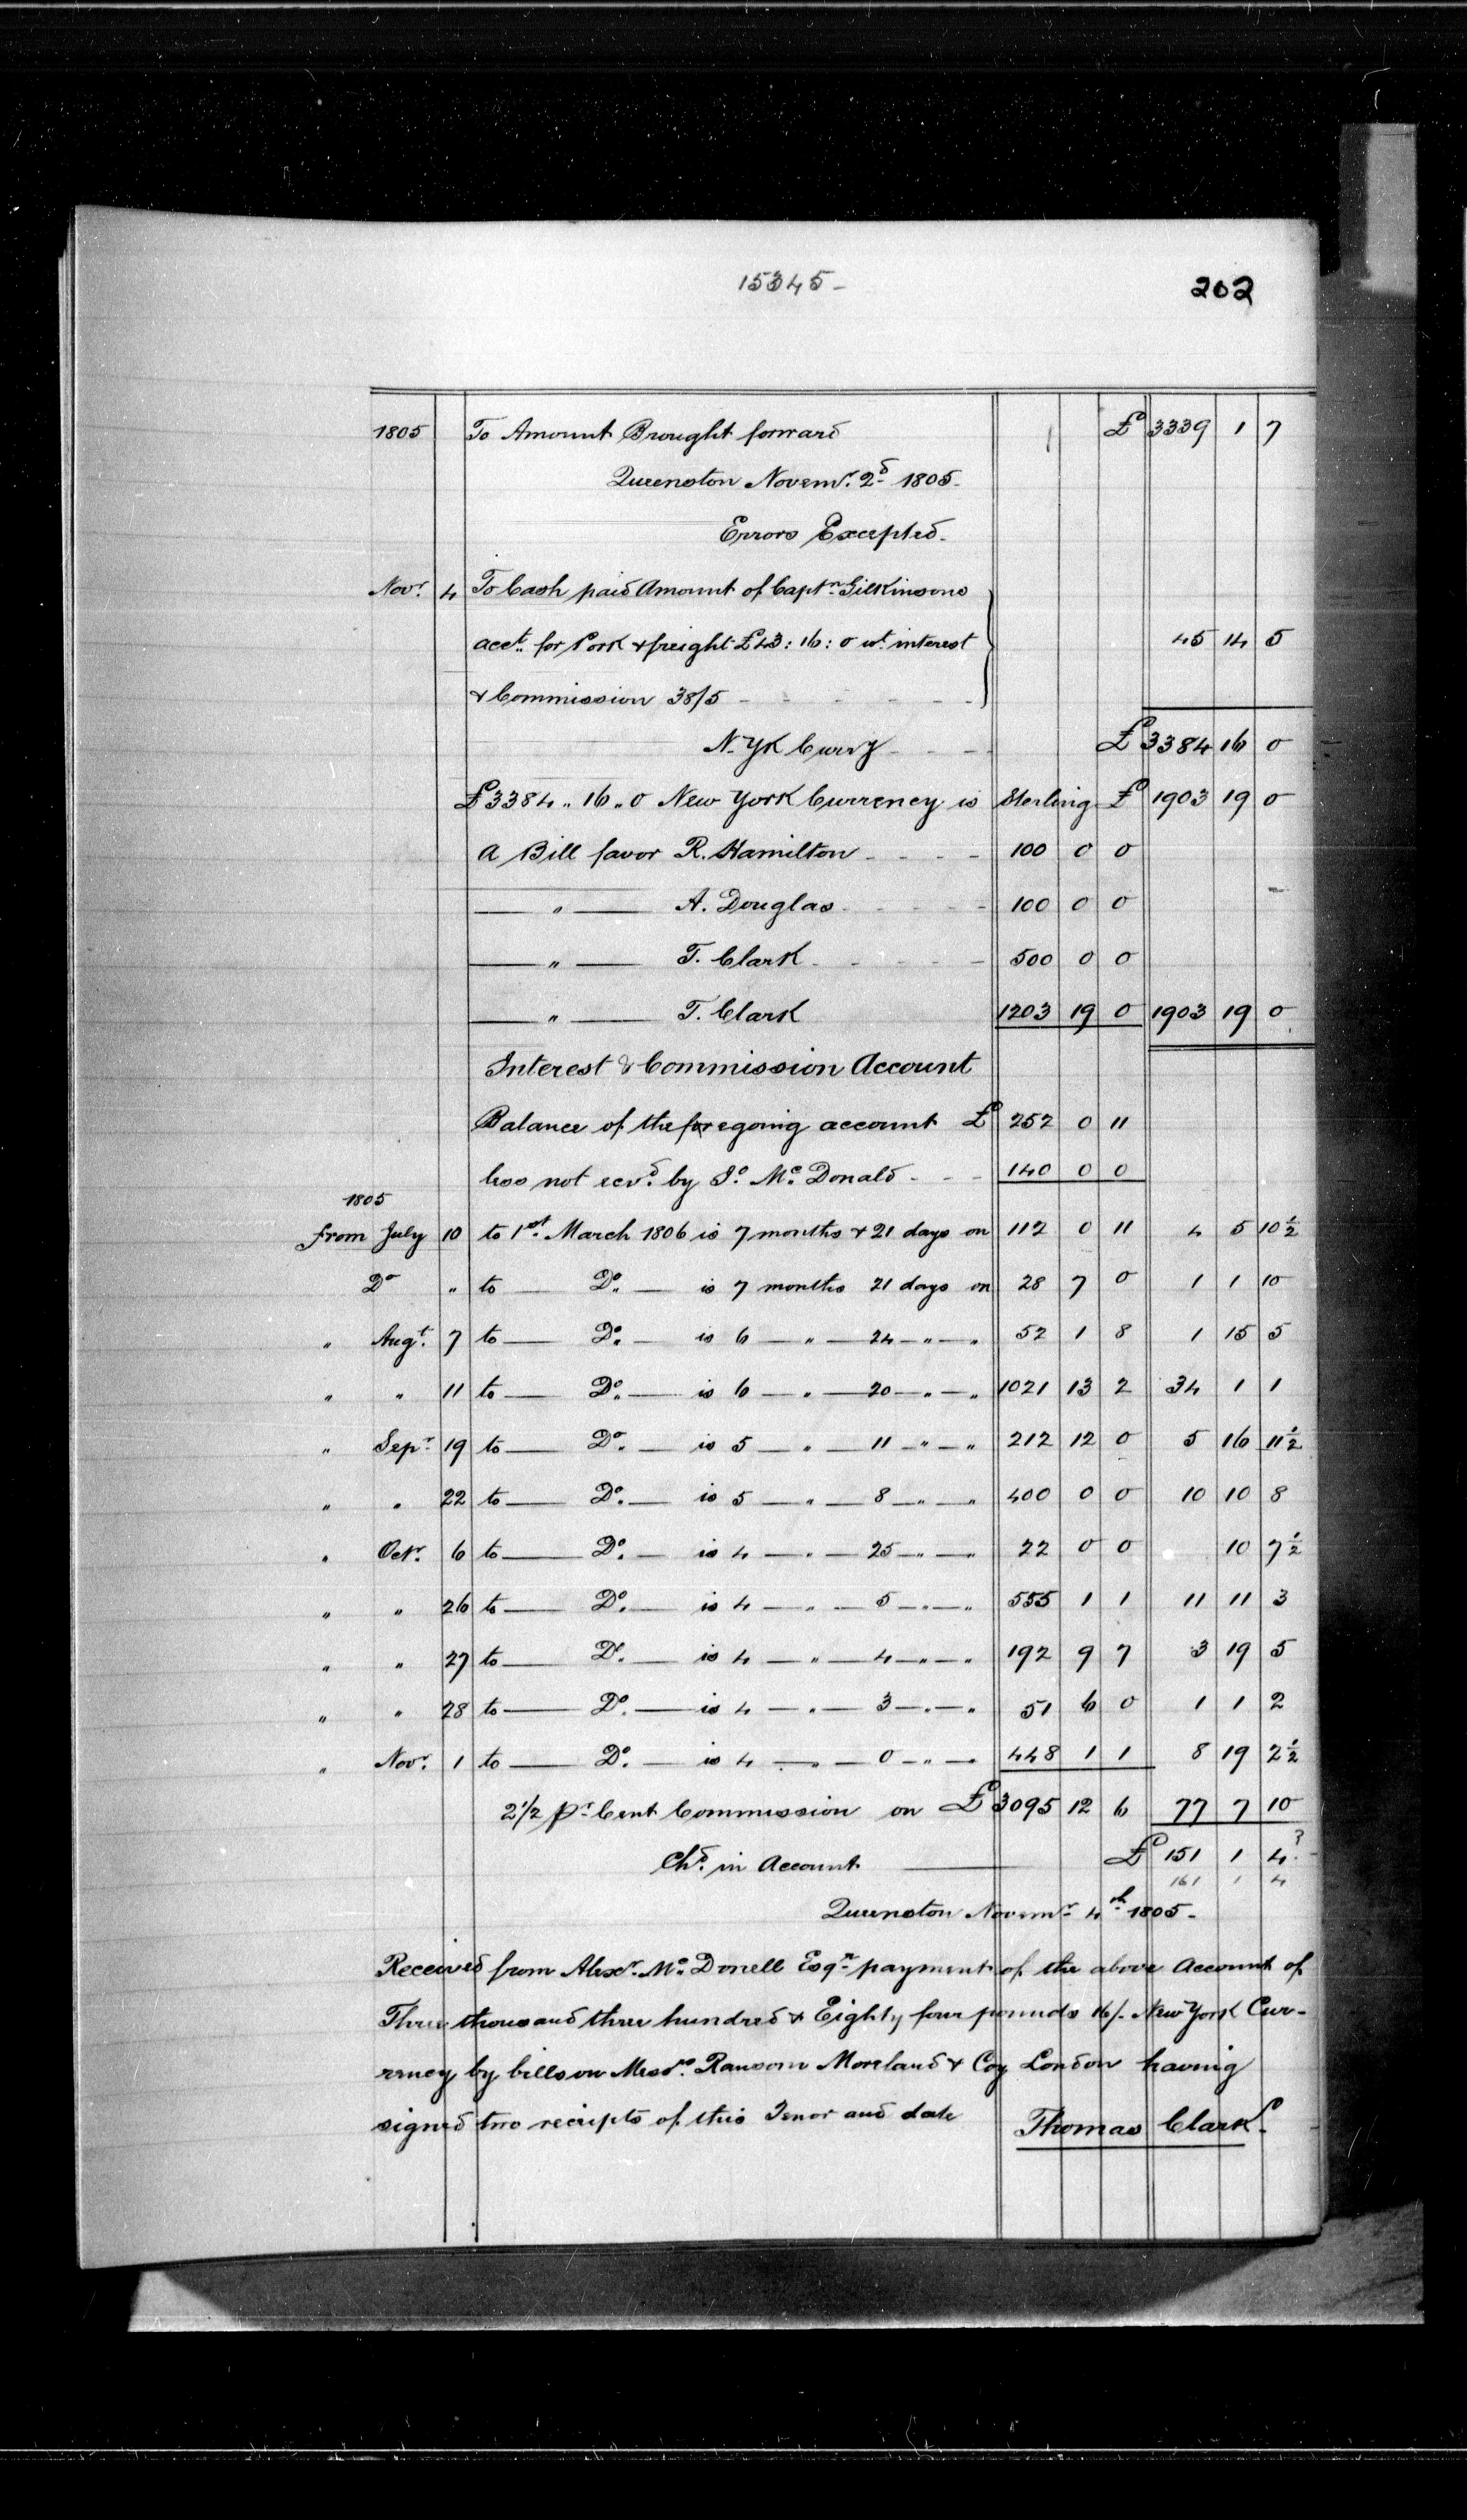 15345-
202
1805 To Amount Brought forward £ 3339 1 7
Queenston Novemr. 2d 1805-
Errors Excepted-
Novr. 4 To Cash paid Amount of Captn. Gilkinsons
acct. for Pork & freight £43:16:0 wt. interest 45 14 5
& Commission 38/5 - - - - - -
N. Yk Curry - - - £ 3384 16 0
£3384 " 16 " 0 New York Currency is Sterling £ 1903 19 0
A Bill favor R. Hamilton - - - - 100 0 0
— " — A. Douglas - - - - - 100 0 0
— " — T. Clark - - - - - 500 0 0
— " — T. Clark 1203 19 0 1903 19 0
Interest & Commission Account
Balance of the foregoing account £ 252 0 11
less not recvd. by Jo. Mc. Donald - - - 140 0 0
1805
from July 10 to 1st. March 1806 is 7 months & 21 days on 112 0 11 4 5 10½
Do " to — Do. — is 7 months 21 days on 28 7 0 1 1 10
" Augt. 7 to — Do. — is 6 — " — 24 — " — " 52 1 8 1 15 5
" " 11 to — Do. — is 6 — " — 20 — " — " 1021 13 2 34 1 1
" Sepr 19 to — Do. — is 5 — " — 11 — " — " 212 12 0 5 16 11½
" " 22 to — Do. — is 5 — " — 8 — " — " 400 0 0 10 10 8
" Octr. 6 to — Do. — is 4 — " — 25 — " — " 22 0 0 10 7½
" " 26 to — Do. — is 4 — " — 5 — " — " 555 1 1 11 11 3
" " 27 to — Do. — is 4 — " — 4 — " — " 192 9 7 3 19 5
" " 28 to — Do. — is 4 — " — 3 — " — " 51 6 0 1 1 2
" Novr. 1 to — Do. — is 4 — " — 0 — " — 448 1 1 8 19 2½
2½ pr Cent Commission on £ 3095 12 6 77 7 10
Chd. in Account — £ 151 1 4?
161 1 4
Queenston Novemr 4th 1805-
Received from Alexr. Mc. Donell Esqr. payment of the above Account of
Three thousand three hundred & Eighty four pounds 16/- New York Cur-
rency by bills on Messrs. Ransom Moreland & Coy London having
signed two reciepts of this Tenor and date Thomas Clark.